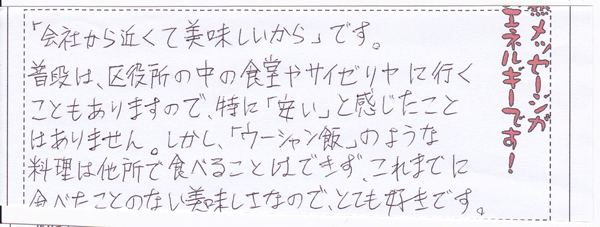 「会社から近くて美味しいから」です。
普段は、区役所の中の食堂やサイゼリヤに行く
こともありますので、特に「安い」と感じたこと
はありません。しかし、「ウーシャン飯」のような
料理は他所で食べることはできず、これまでに
食べたことのない美味しさなので、とても好きです。
メッセージが
エネルギーです！